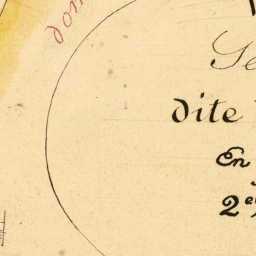 dom
Se
dite
En
2e